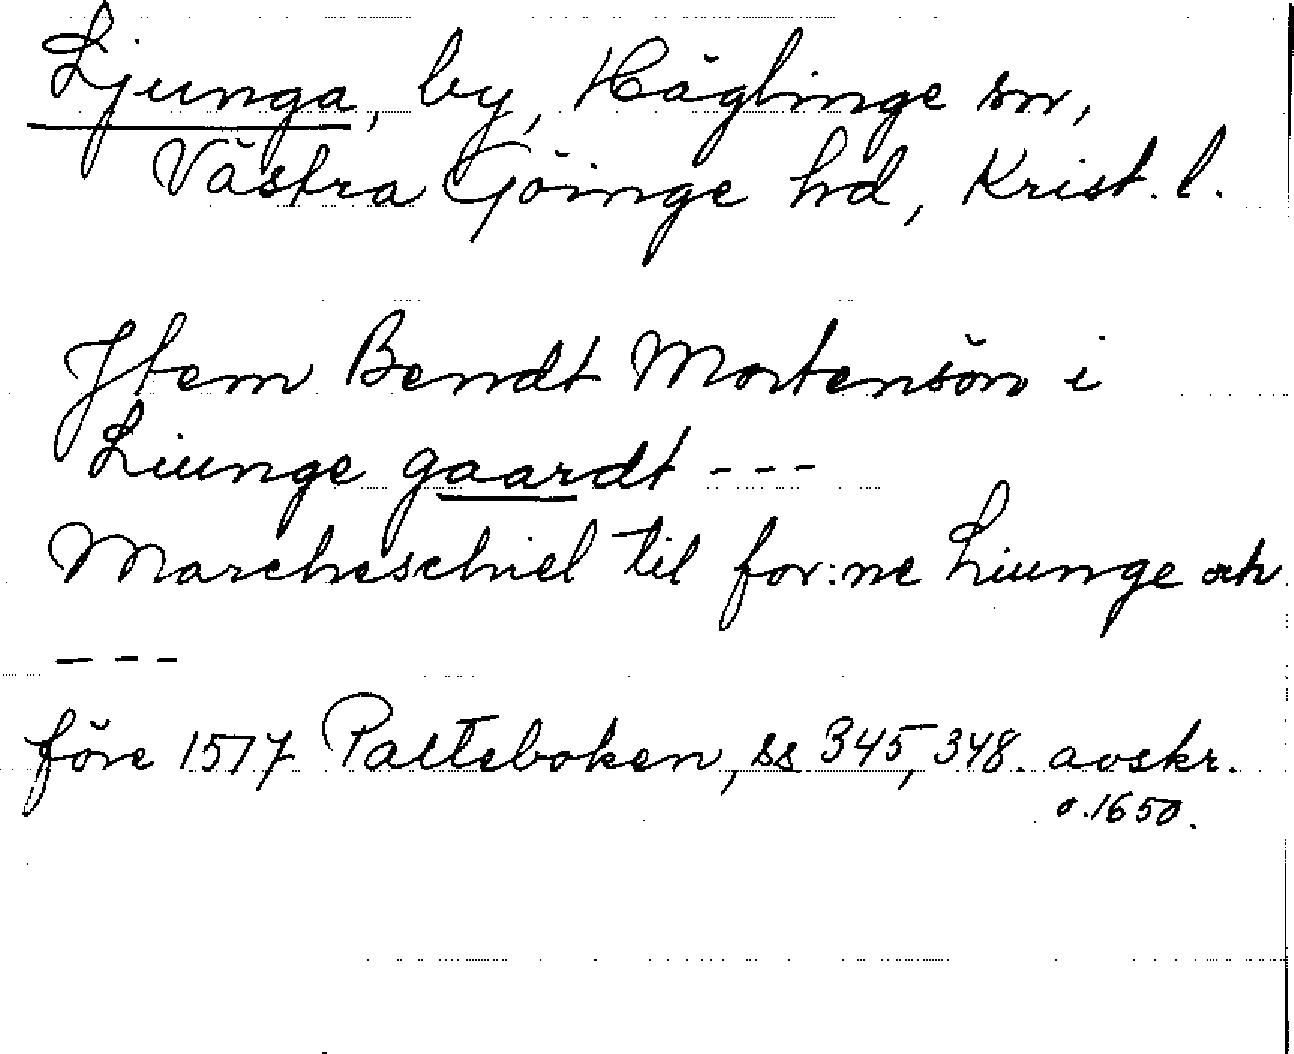 Ljunga, by, Häglinge sn,
Västra Göinge hd, Krist. l.
Jtem Bendt Mortensön i
Liunge gaardt ---
Marcheschiel til for:ne Liunge och
---
före 1517 Palteboken, ss 345, 348. avskr.
o. 1650.